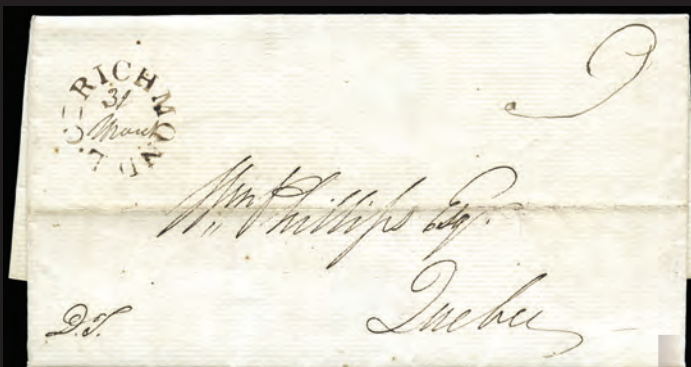 RICHMOND L.C.
31
March
9
Wm Phillips Esqr.
Quebec
D.T.